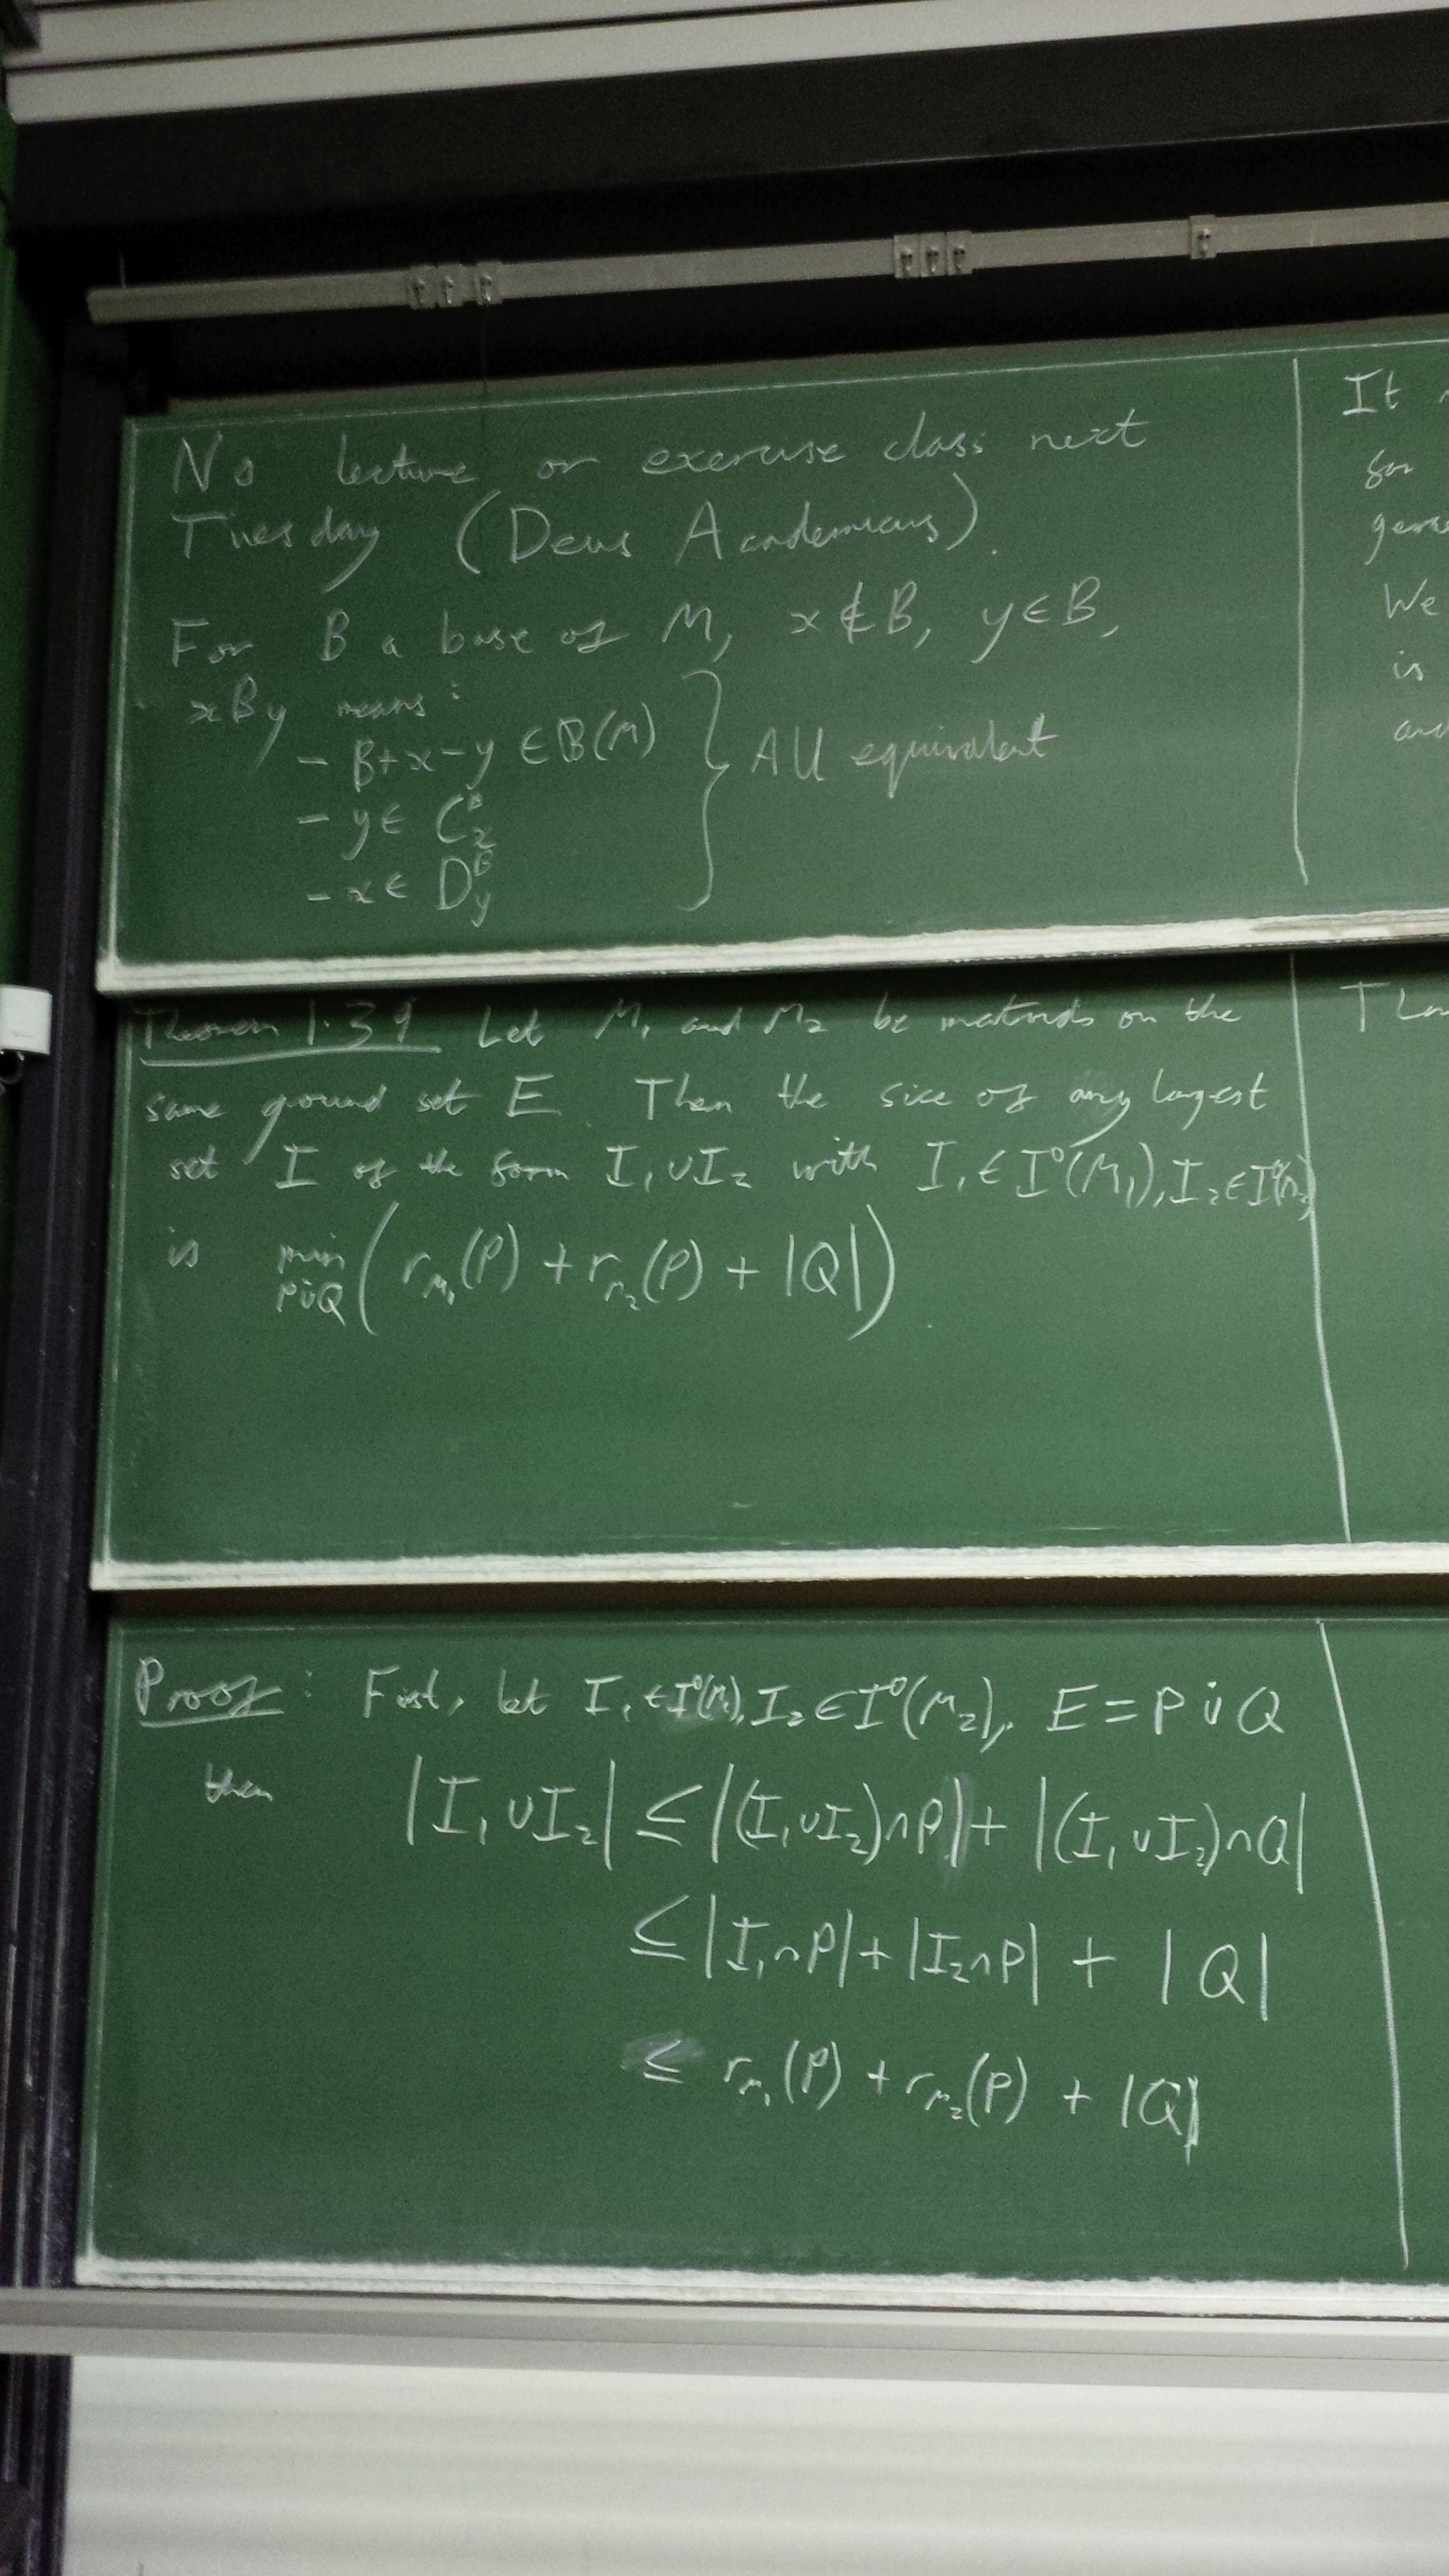 No lecture or exercise class next
Tuesday (Deus Academicus).
For B a base of M, x ∉ B, y ∈ B,
xBy means:
- B+x-y ∈ B(M)
- y ∈ C_x^B
- x ∈ D_y^B
} All equivalent
It
for
We
is
Theorem 1.39 Let M₁ and M₂ be matroids on the
same ground set E. Then the size of any largest
set I of the form I₁∪I₂ with I₁∈I°(M₁), I₂∈I°(M₂)
is min_{P∪̇Q} ( r_{M₁}(P) + r_{M₂}(P) + |Q| )
Proof: First, let I₁∈I°(M₁), I₂∈I°(M₂), E = P ∪̇ Q
then |I₁∪I₂| ≤ |(I₁∪I₂)∩P| + |(I₁∪I₂)∩Q|
≤ |I₁∩P| + |I₂∩P| + |Q|
≤ r_{M₁}(P) + r_{M₂}(P) + |Q|